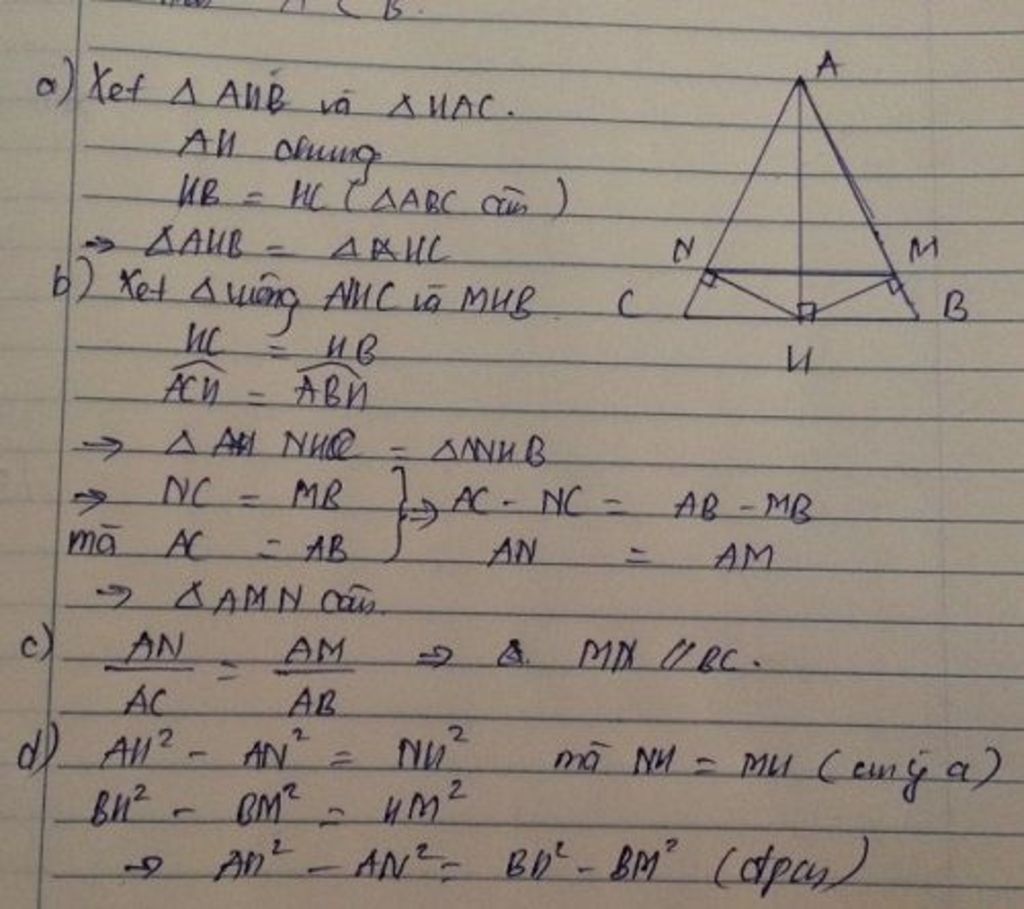 A C B.
a) Xét Δ AHB và Δ HAC.
AH chung
HB = HC (ΔABC cân)
=> ΔAHB = ΔAHC
b) Xét Δ vuông NHC và MHB
HC = HB
ACH = ABH
=> Δ NHC = ΔMHB
=> NC = MB } => AC - NC = AB - MB
mà AC = AB AN = AM
=> ΔAMN cân.
c) AN/AC = AM/AB => MN // BC.
d) AH² - AN² = NH² mà NH = MH (cm ý a)
BH² - BM² = HM²
=> AH² - AN² = BH² - BM² (đpcm)
A
N
M
C
B
H